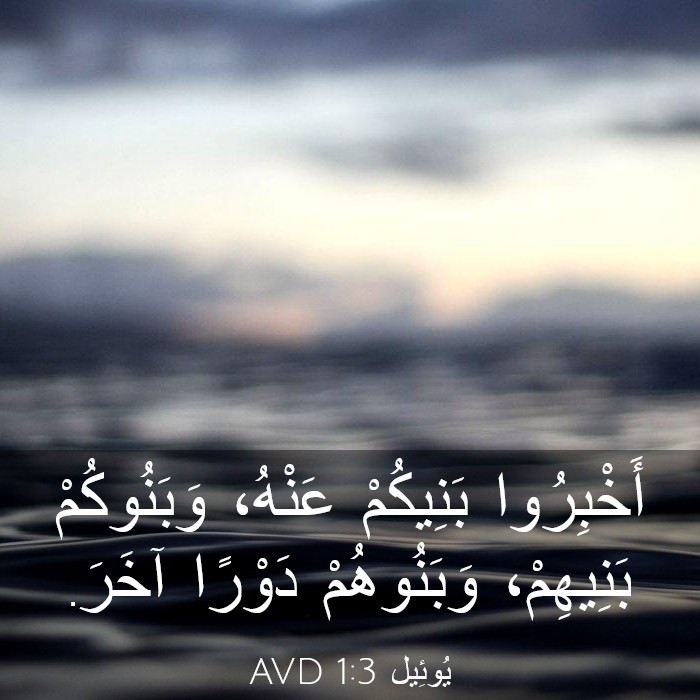 أَخْبِرُوا بَنِيكُمْ عَنْهُ، وَبَنُوكُمْ
بَنِيهِمْ، وَبَنُوهُمْ دَوْرًا آخَرَ.
يُوئِيل 1:3 AVD